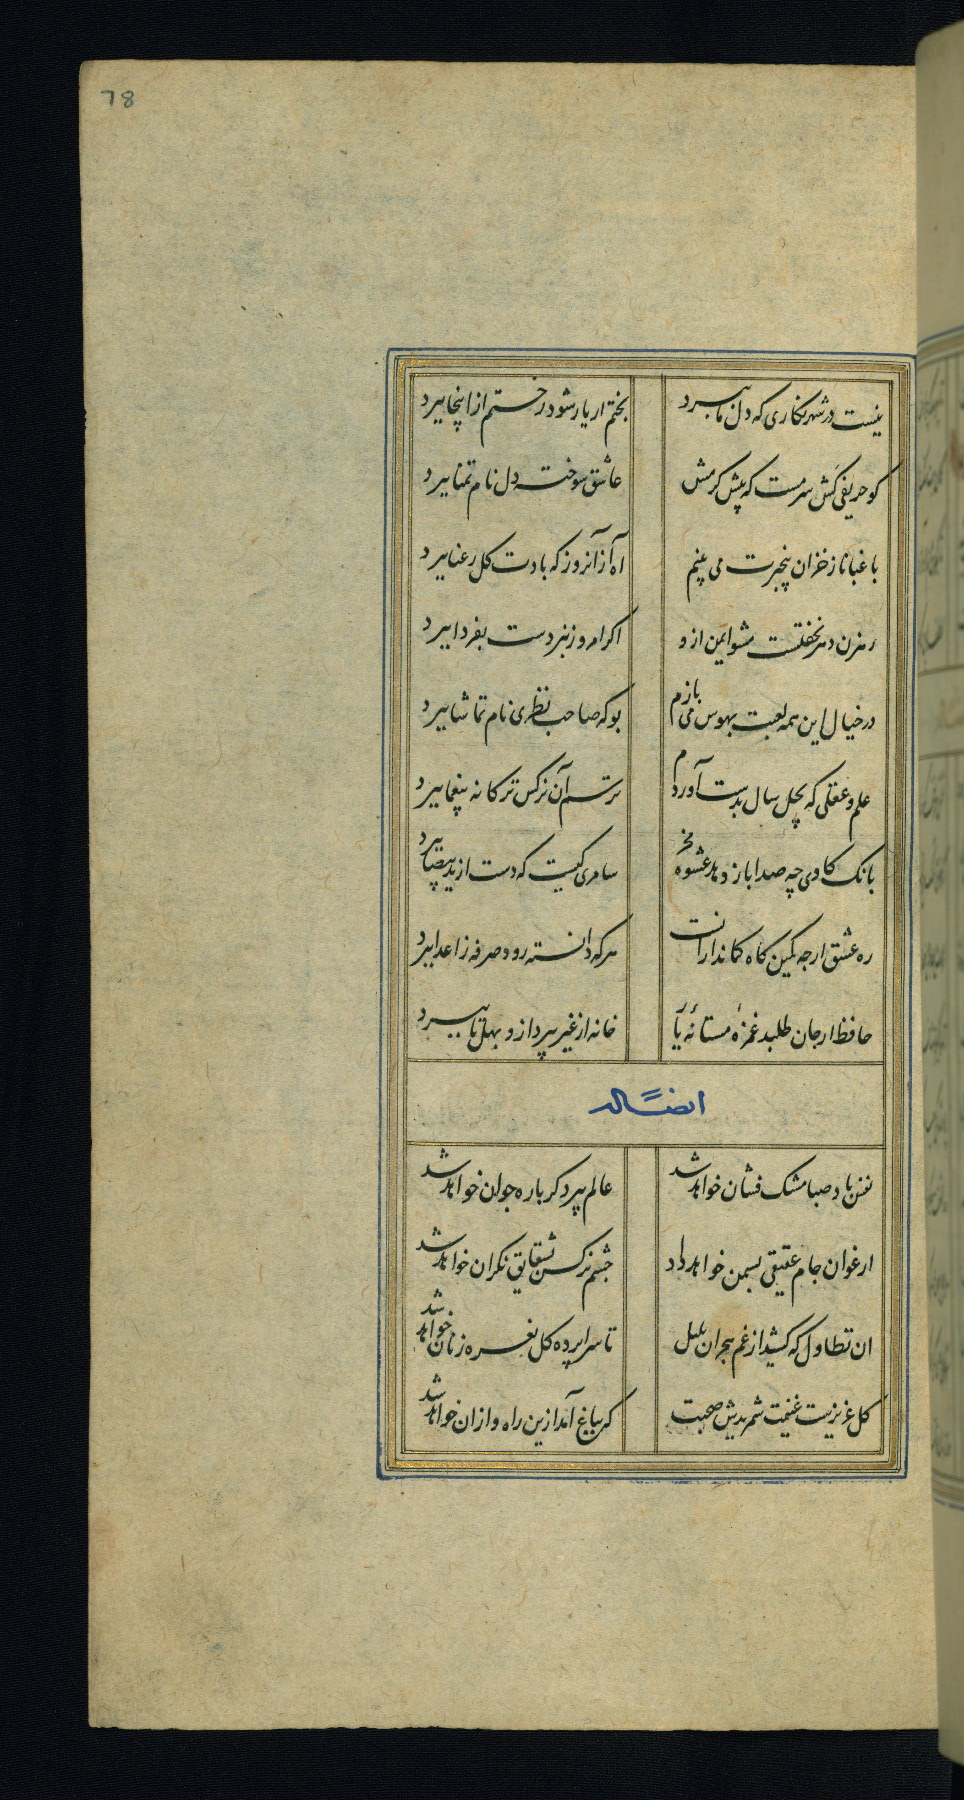 78
نیست در شهر نکاری که دل ما ببرد بختم ار یار شود رختم از اینجا ببرد
کو حریفی کش سرمست که پیش کرمش عاشق سوخته دل نام تمنا ببرد
باغبانا ز خزان بیخبرت می بینم آه از آنروز که بادت کل رعنا ببرد
رهزن دهر نخفتست مشو ایمن ازو اکر امروز نبردست بفردا ببرد
در خیال این همه لعبت بهوس می بازم بو که صاحب نظری نام تماشا ببرد
علم و عقلی که بچل سال بدست آوردم ترسم آن نرکس ترکانه بیغما ببرد
بانک کاوی چه صدا باز دهد عشوه مخر سامری کیست که دست از ید بیضا ببرد
ره عشق ار چه کمین کاه کماندارانست هر که دانسته رود صرفه ز اعدا ببرد
حافظ ار جان طلبد غمزهٔ مستانهٔ یار خانه از غیر بپرداز و بهل تا ببرد
ایضاً له
نفس باد صبا مشک فشان خواهد شد عالم پیر دکر باره جوان خواهد شد
ارغوان جام عقیقی بسمن خواهد داد چشم نرکس بشقایق نکران خواهد شد
ان تطاول که کشید از غم هجران بلبل تا سراپرده کل نعره زنان خواهد شد
کل عزیزست غنیمت شمریدش صحبت که بباغ آمد ازین راه و ازان خواهد شد